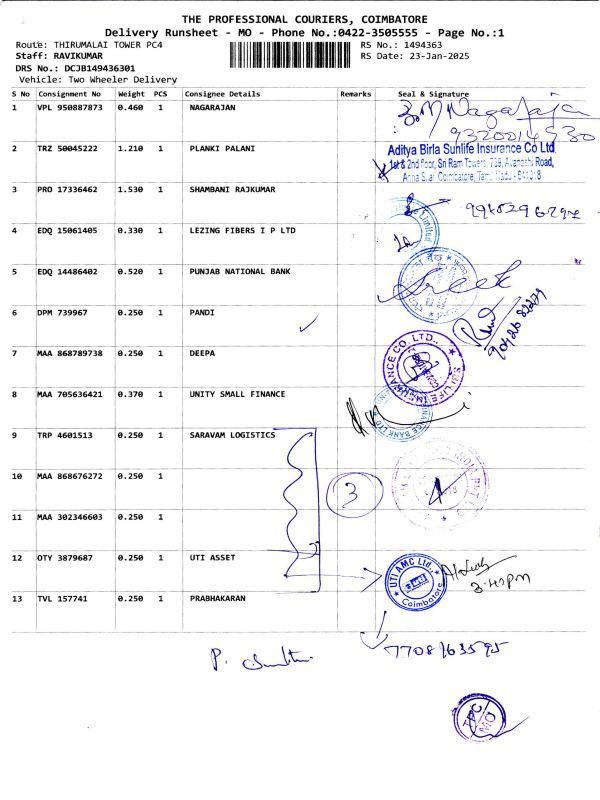 THE PROFESSIONAL COURIERS, COIMBATORE
Delivery Runsheet - MO - Phone No.:0422-3505555 - Page No.:1
Route: THIRUMALAI TOWER PC4 RS No.: 1494363
Staff: RAVIKUMAR RS Date: 23-Jan-2025
DRS No.: DCJB149436301
Vehicle: Two Wheeler Delivery
S No Consignment No Weight PCS Consignee Details Remarks Seal & Signature
1 VPL 950887873 0.460 1 NAGARAJAN
9320014530
2 TRZ 50045222 1.210 1 PLANKI PALANI Aditya Birla Sunlife Insurance Co Ltd
1st & 2nd Floor, Sri Ram Towers, 739, Avanashi Road,
Anna Salai Coimbatore, Tamil Nadu - 641018
3 PRO 17336462 1.530 1 SHAMBANI RAJKUMAR
4 EDQ 15061405 0.330 1 LEZING FIBERS I P LTD Limited
5 EDQ 14486402 0.520 1 PUNJAB NATIONAL BANK
6 DPM 739967 0.250 1 PANDI
7 MAA 868789738 0.250 1 DEEPA
8 MAA 705636421 0.370 1 UNITY SMALL FINANCE
9 TRP 4601513 0.250 1 SARAVAM LOGISTICS
10 MAA 868676272 0.250 1 3
11 MAA 302346603 0.250 1
12 OTY 3879687 0.250 1 UTI ASSET UTI AMC Ltd., Coimbatore
3-40pm
13 TVL 157741 0.250 1 PRABHAKARAN
7708163595
TPC
MO